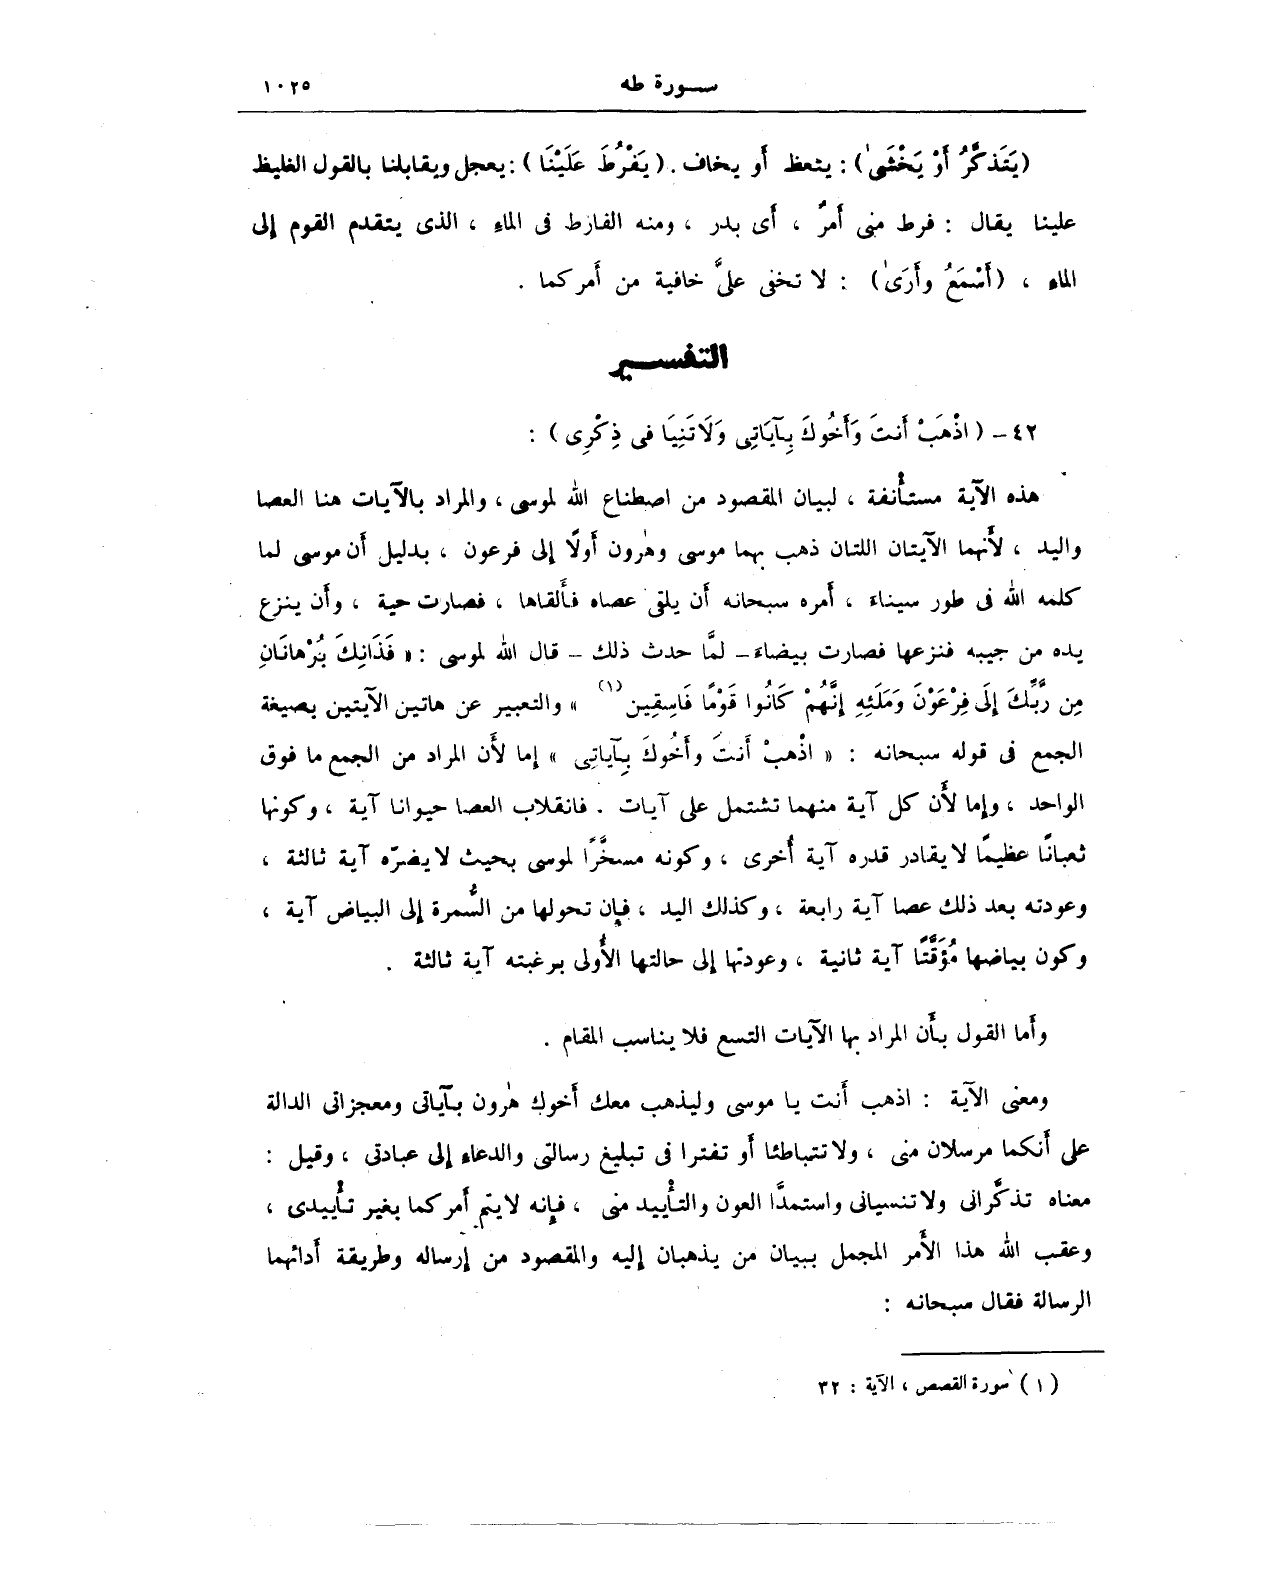 سورة طه ١٠٢٥
(يَتَذكَّرُ أَوْ يَخْشَىٰ) : يتعظ أو يخاف . (يَفْرُطَ عَلَيْنَا) : يعجل ويقابلنا بالقول الغليظ
علينا يقال : فرط منى أمرٌ ، أى بدر ، ومنه الفارط فى الماء ، الذى يتقدم القوم إلى
الماء ، (أَسْمَعُ وأَرَىٰ) : لا تخفى علىَّ خافية من أمركما .
التفسير
٤٢ – ( اذْهَبْ أَنتَ وَأَخُوكَ بِآيَاتِى وَلَا تَنِيَا فى ذِكْرِى ) :
هذه الآية مستأنفة ، لبيان المقصود من اصطناع الله لموسى ، والمراد بالآيات هنا العصا
واليد ، لأنهما الآيتان اللتان ذهب بهما موسى وهٰرون أولًا إلى فرعون ، بدليل أن موسى لما
كلمه الله فى طور سيناء ، أمره سبحانه أن يلقى عصاه فألقاها ، فصارت حية ، وأن ينزع
يده من جيبه فنزعها فصارت بيضاء – لمَّا حدث ذلك – قال الله لموسى : « فَذَانِكَ بُرْهانَانِ
مِن رَّبِّكَ إِلَى فِرْعَوْنَ وَمَلَئِهِ إِنَّهُمْ كَانُوا قَوْمًا فَاسِقِين (١) » والتعبير عن هاتين الآيتين بصيغة
الجمع فى قوله سبحانه : « اذْهبْ أَنتَ وأَخُوكَ بِآياتِى » إما لأن المراد من الجمع ما فوق
الواحد ، وإما لأن كل آية منهما تشتمل على آيات . فانقلاب العصا حيوانا آية ، وكونها
ثعبانًا عظيمًا لا يقادر قدره آية أُخرى ، وكونه مسخَّرًا لموسى بحيث لا يضرّه آية ثالثة ،
وعودته بعد ذلك عصا آية رابعة ، وكذلك اليد ، فإن تحولها من السُّمرة إلى البياض آية ،
وكون بياضها مُؤَقَّتًا آية ثانية ، وعودتها إلى حالتها الأُولى برغبته آية ثالثة .
وأما القول بأن المراد بها الآيات التسع فلا يناسب المقام .
ومعنى الآية : اذهب أنت يا موسى وليذهب معك أخوك هٰرون بآياتى ومعجزاتى الدالة
على أنكما مرسلان منى ، ولا تتباطئا أو تفترا فى تبليغ رسالتى والدعاء إلى عبادتى ، وقيل :
معناه تذكَّرانى ولا تنسيانى واستمدَّا العون والتأييد منى ، فإنه لا يتم أمركما بغير تأييدى ،
وعقب الله هذا الأمر المجمل ببيان من يذهبان إليه والمقصود من إرساله وطريقة أدائهما
الرسالة فقال سبحانه :
(١) سورة القصص ، الآية : ٣٢